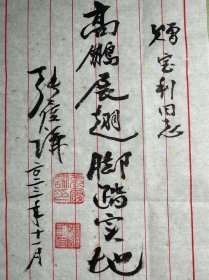 赠宝利同志
高鹏展翅脚踏实地
张俊祥
二〇一二年十一月